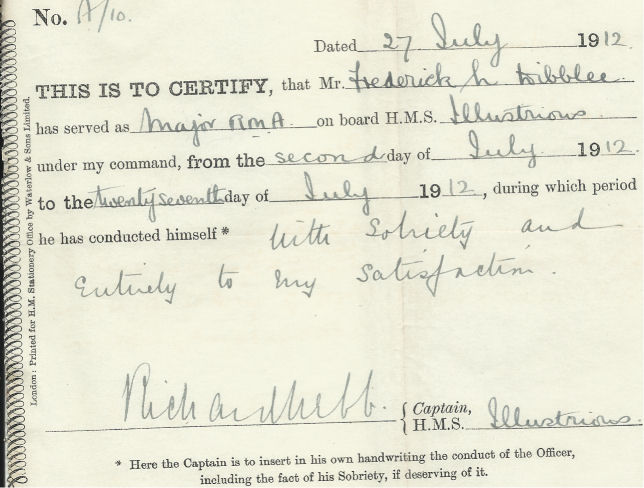 No. A/10.
Dated 27 July 1912.
THIS IS TO CERTIFY, that Mr. Frederick L Dibblee
has served as Major RMA on board H.M.S. Illustrious
under my command, from the second day of July 1912.
to the twenty seventh day of July 1912, during which period
he has conducted himself * With Sobriety and
Entirely to my Satisfaction.
Richard Webb. { Captain,
H.M.S. Illustrious.
* Here the Captain is to insert in his own handwriting the conduct of the Officer,
including the fact of his Sobriety, if deserving of it.
London: Printed for H.M. Stationery Office by Waterlow & Sons Limited.